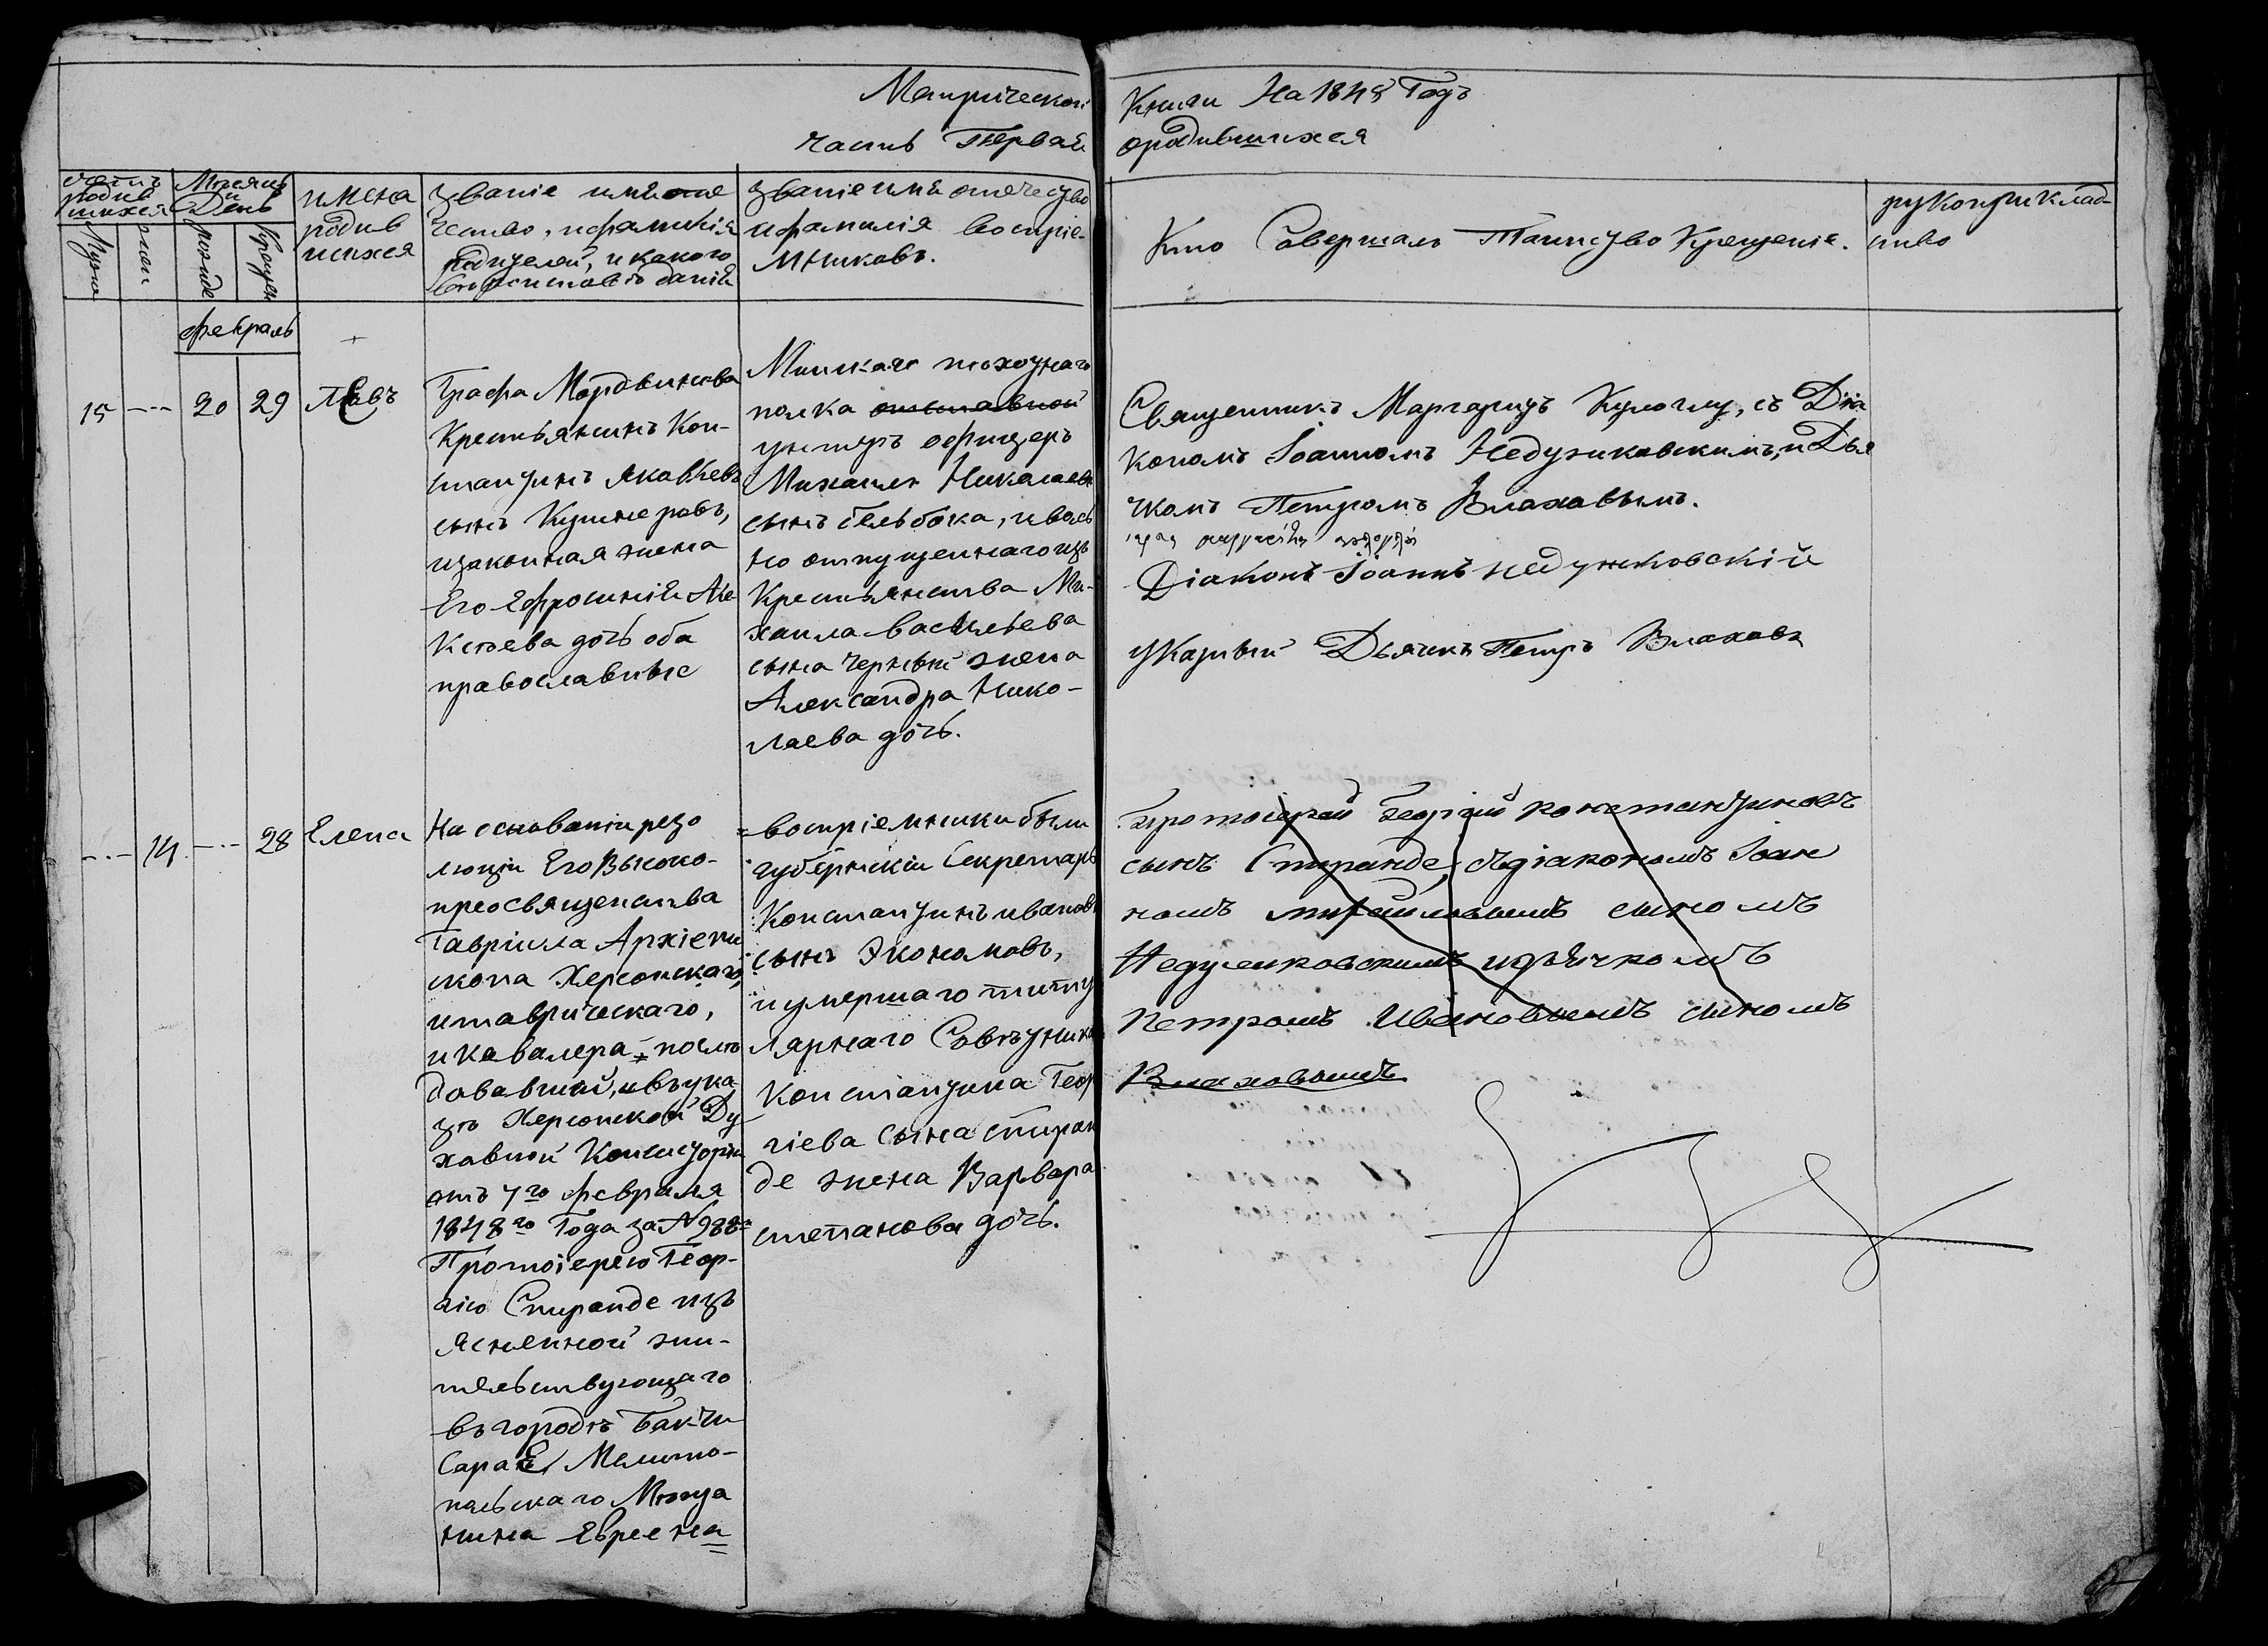 Метрической Книги На 1848 Годъ
часть Первая ородившихся
счетъ родив шихся
Мужес
жен
Месяцъ и День
рожде
Крещен
имена родив шихся
званіе имя оте
чество, ифамилія
родителей, и какого
вероисповеданія
званіе имя отечество
ифамилія воспріе-
мниковъ.
Кто Совершалъ Таинство Крещеніе.
рукоприклад-
ство
февраль
15 --- 20 29 Левъ
Графа Мордвинова
Крестьянинъ Кон-
стантинъ Яковлевъ
сынъ Кушнеровъ,
изаконная жена
Его Ефросинія Але
Ксеева дочь оба
православные
Минскаго пехотнаго
полка отставной
унтеръ офицеръ
Михаилъ Николаевъ
сынъ Бельбока, иволь
но отпущеннаго изъ
Крестьянства Ми-
хаила Васильева
сына Черный жена
Александра Нико-
лаева дочь.
Священникъ Маргаритъ Кулоглу, съ Діа
кономъ Іоанномъ Недузиковскимъ, и Дья
чкомъ Петромъ Влаховымъ.
Діаконъ Іоаннъ недзиковскій
указный Дьячекъ Петръ Влаховъ
--- 14 --- 28 Елена
На основаніи резо
люціи Его Высоко-
преосвященства
Гавріила Архіепи
скопа Херсонскаго,
итаврическаго,
и Кавалера = после
довавшей, ивъ ука
зе Херсонской Ду
ховной Консисторіи
отъ 7го февраля
1848го Года за №988=
Протоіерею Геор-
гію Спиранде изъ
яснённой жи-
тельствующаго
въ городе Бакчи
Сарае Мелито-
польскаго Меща
нина Еврея на
=воспріемники были
губернскій Секретарь
Константинъ ивановъ
сынъ Экономовъ,
и умершаго титу
лярнаго Советника
Константина Геор
гіева Сына спиран
де жена Варвара
степанова дочь.
Протоіерей Георгій константиновъ
сынъ Спиранде, съдіакономъ Іоан
номъ михайловымъ сыномъ
Недзиковскимъ идьячкомъ
петромъ Ивановымъ сыномъ
Влаховымъ